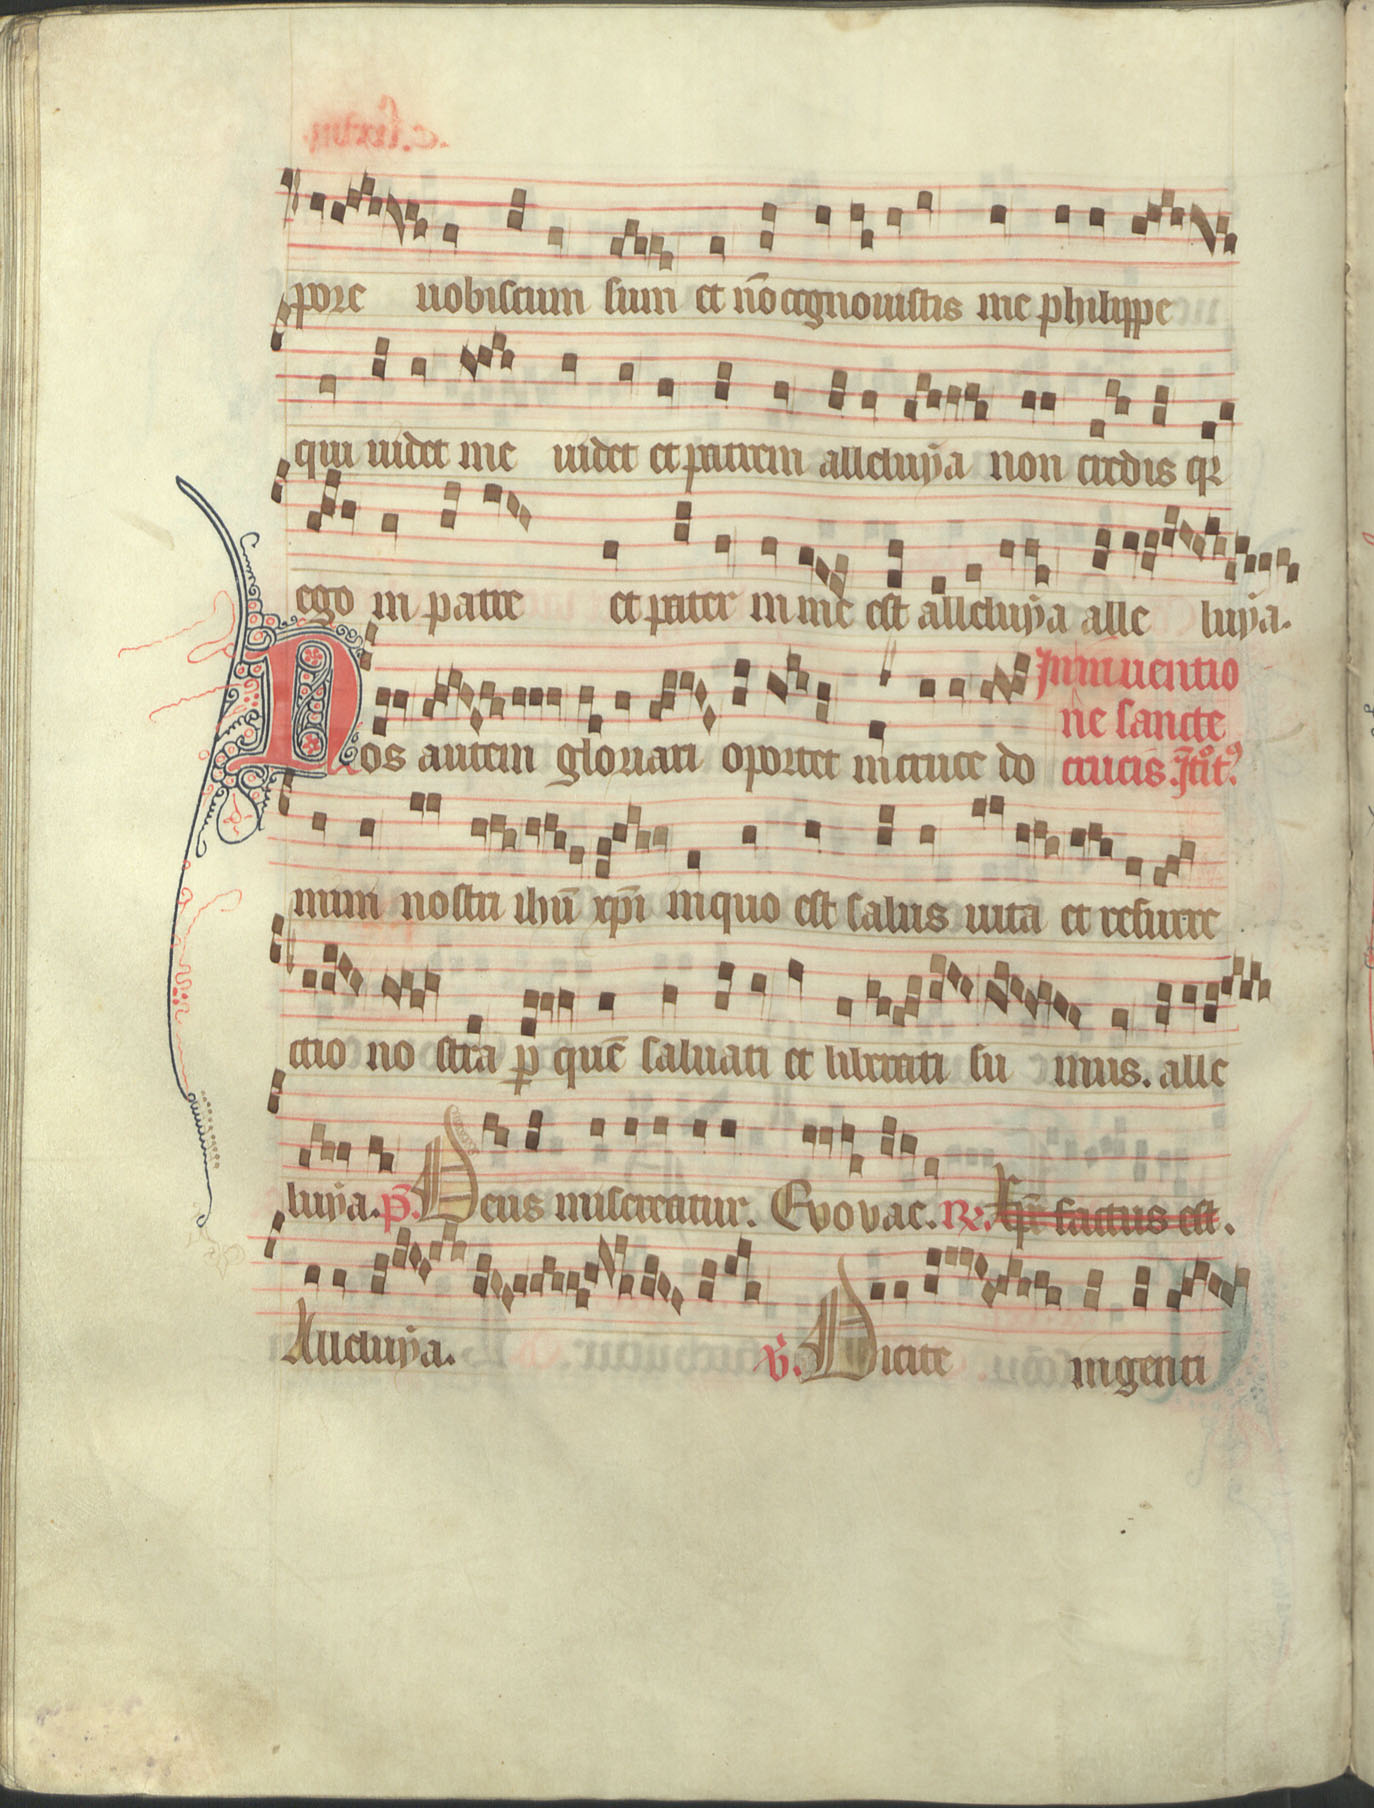 pore uobiscum sum et nō cognouistis me philippe
qui uidet me uidet et patrem alleluÿa non credis qꝛ
ego in patre et pater in me est alleluÿa alle luÿa.
In inuentio
ne sancte
Nos autem gloriari oportet in cruce do
crucis. Jntͦit᷒.
mini nostri ihū xp̄i in quo est salus uita et resurre
ctio no stra ꝑ quē saluati et liberati su mus. alle
luÿa. p̄s. Deus misereatur. Evovae. R̷e. Xp̄c factus est.
Alleluÿa. v̄. Dicite in genti